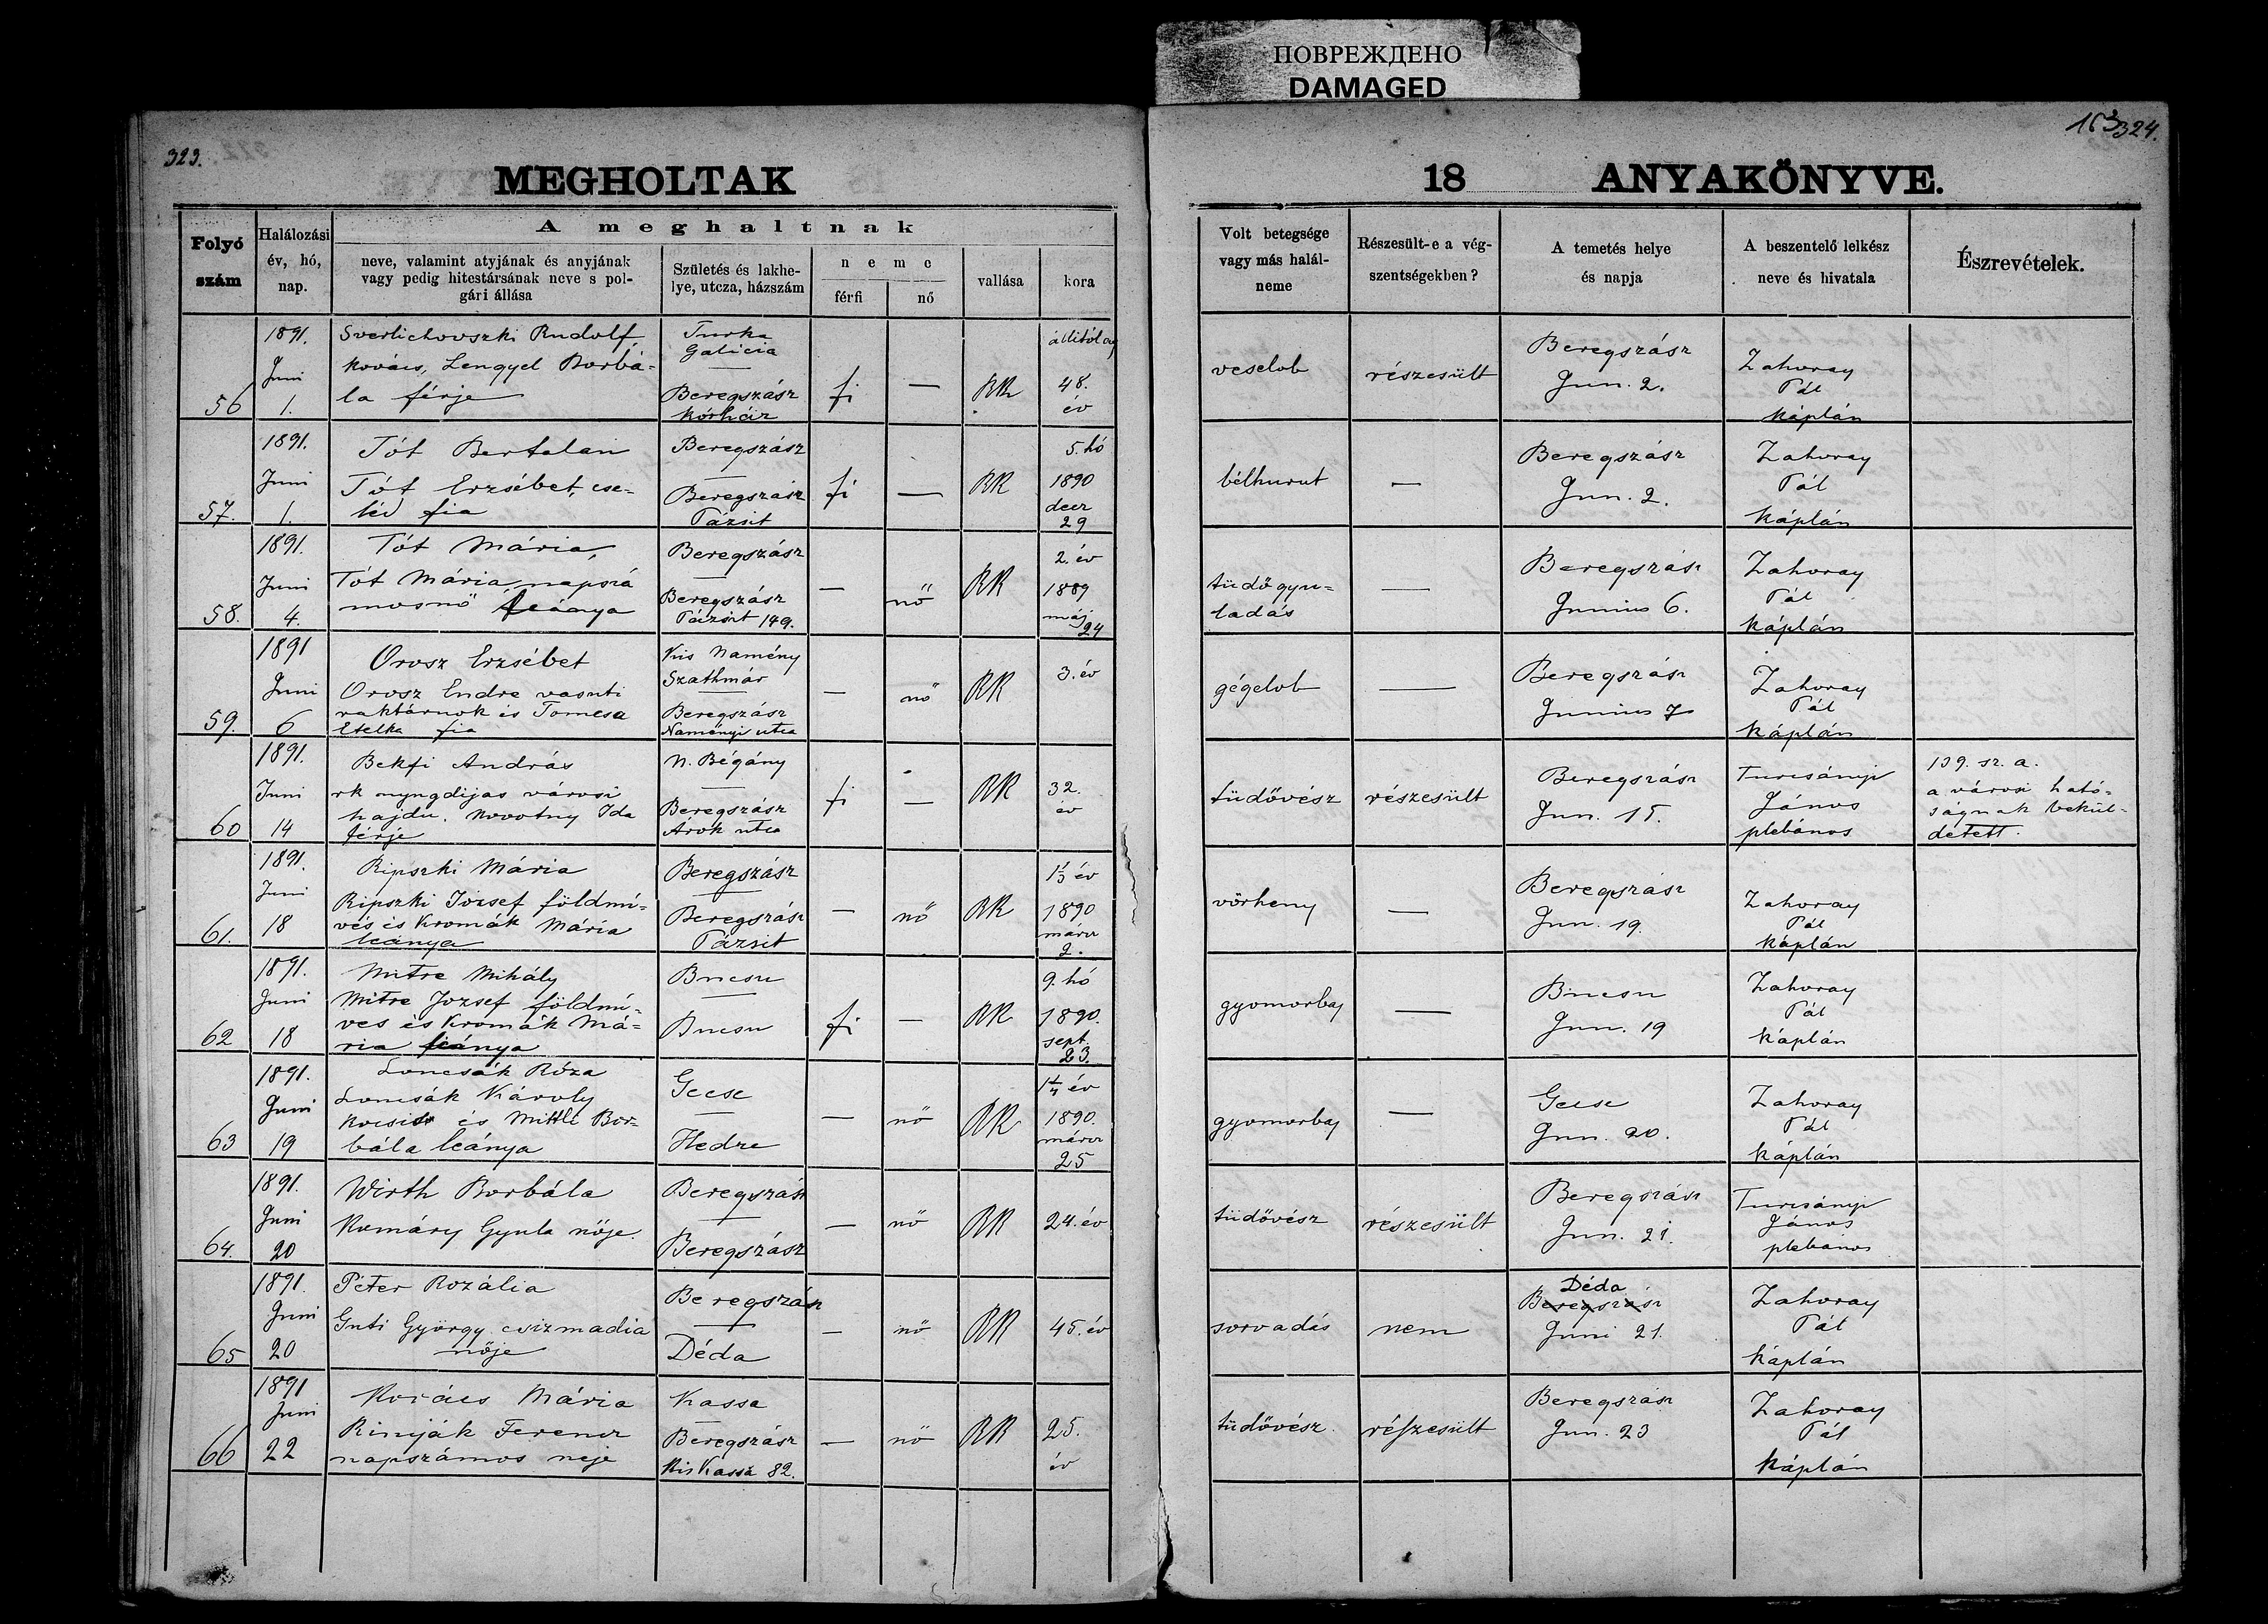 ПОВРЕЖДЕНО
DAMAGED
323.
163
324.
MEGHOLTAK
18 ANYAKÖNYVE.
Folyó szám
Halálozási év, hó, nap.
A meghaltnak
neve, valamint atyjának és anyjának
vagy pedig hitestársának neve s pol-
gári állása
Születés és lakhe-
lye, utcza, házszám
neme
férfi
nő
vallása
kora
Volt betegsége
vagy más halál-
neme
Részesült-e a vég-
szentségekben?
A temetés helye
és napja
A beszentelő lelkész
neve és hivatala
Észrevételek.
56
1891.
Juni
1.
Sverlichovszki Rudolf
kovács, Lengyel Borbá-
la férje
Turka
Galicia
Beregszász
kórház
fi
—
RK
állitólag
48.
év
veselob
részesült
Beregszász
Jun. 2.
Zahoray
Pál
káplán
57.
1891.
Juni
1.
Tót Bertalan
Tót Erzsébet, cse-
léd fia
Beregszász
Beregszász
Pázsit
fi
—
RK
5. hó
1890
decr
29
bélhurut
—
Beregszász
Jun. 2.
Zahoray
Pál
káplán
58.
1891.
Juni
4.
Tót Mária,
Tót Mária napszá
mosnő leánya
Beregszász
Beregszász
Pázsit 149.
—
nő
RK
2. év
1889
máj
24
tüdőgyu-
ladás
—
Beregszász
Junius 6.
Zahoray
Pál
káplán
59.
1891
Juni
6
Orosz Erzsébet
Orosz Endre vasuti
raktárnok és Tomcsa
Etelka fia
Kis Namény
Szathmár
Beregszász
Naményi utca
—
nő
RK
3. év
gégelob
—
Beregszász
Junius 7
Zahoray
Pál
káplán
60
1891.
Juni
14
Bekfi András
rk nyugdijas városi
hajdu. Novotny Ida
férje
N. Bégány
Beregszász
Árok utca
fi
—
RK
32.
év
tüdővész
részesült
Beregszász
Jun. 15.
Turcsányi
János
plebános
139. sz. a.
a városi ható-
ságnak bekül-
detett.
61.
1891.
Juni
18
Ripszki Mária
Ripszki József földmi-
vés és Kromák Mária
leánya
Beregszász
Beregszász
Pázsit
—
nő
RK
1⅓ év
1890
márcz
2.
vörheny
—
Beregszász
Jun. 19.
Zahoray
Pál
káplán
62
1891.
Juni
18
Mitre Mihály
Mitre Jozsef földmi-
ves és Kromák Má-
ria leánya
Bucsu
Bucsu
fi
—
RK
9. hó
1890.
sept.
23.
gyomorbaj
—
Bucsu
Jun. 19
Zahoray
Pál
káplán
63
1891.
Juni
19
Loncsák Róza
Loncsák Károly
kocsis és Mittli Bor-
bála leánya
Gecse
Hedre
—
nő
RK
1¼ év
1890.
márcz
25
gyomorbaj
—
Gecse
Jun. 20.
Zahoray
Pál
káplán
64.
1891.
Juni
20
Wirth Borbála
Komáry Gyula nője.
Beregszász
Beregszász
—
nő
RK
24. év
tüdővész
részesült
Beregszász
Jun. 21.
Turcsányi
János
plebános
65
1891.
Juni
20
Péter Rozália
Guti György csizmadia
nője
Beregszász
Déda
—
nő
RK
45. év
sorvadás
nem
Déda
Beregszász
Juni 21.
Zahoray
Pál
káplán
66
1891
Juni
22
Kovács Mária
Rinyják Ferencz
napszámos neje
Kassa
Beregszász
Kis Kassa 82.
—
nő
RK
25.
év
tüdővész
részesült
Beregszász
Jun. 23
Zahoray
Pál
káplán